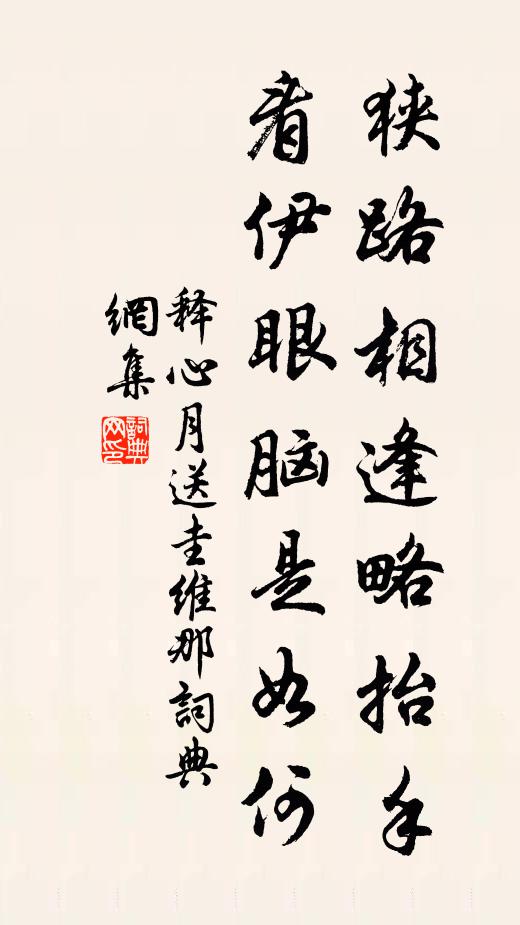 狭路相逢略抬手
看伊眼脑是如何
释心月送圭维那詞典
網集
詞典
网印